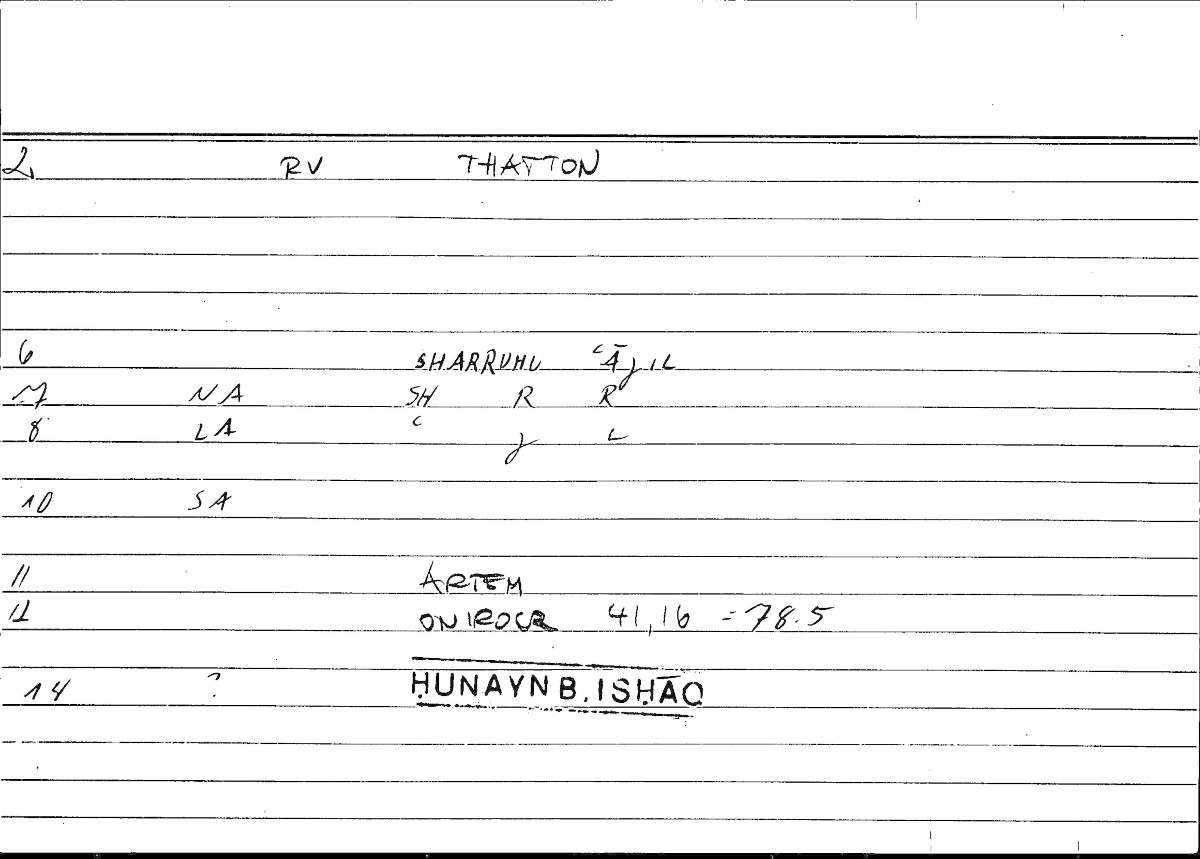 2. RV THATTON
6 SHARRUHU ʿĀJIL
7 NA SH R R
8 LA ʿ J L
10 SA
11 ARTEM
12 ONIROCR 41,16 = 78.5
14 ? ḤUNAYN B. ISḤĀQ